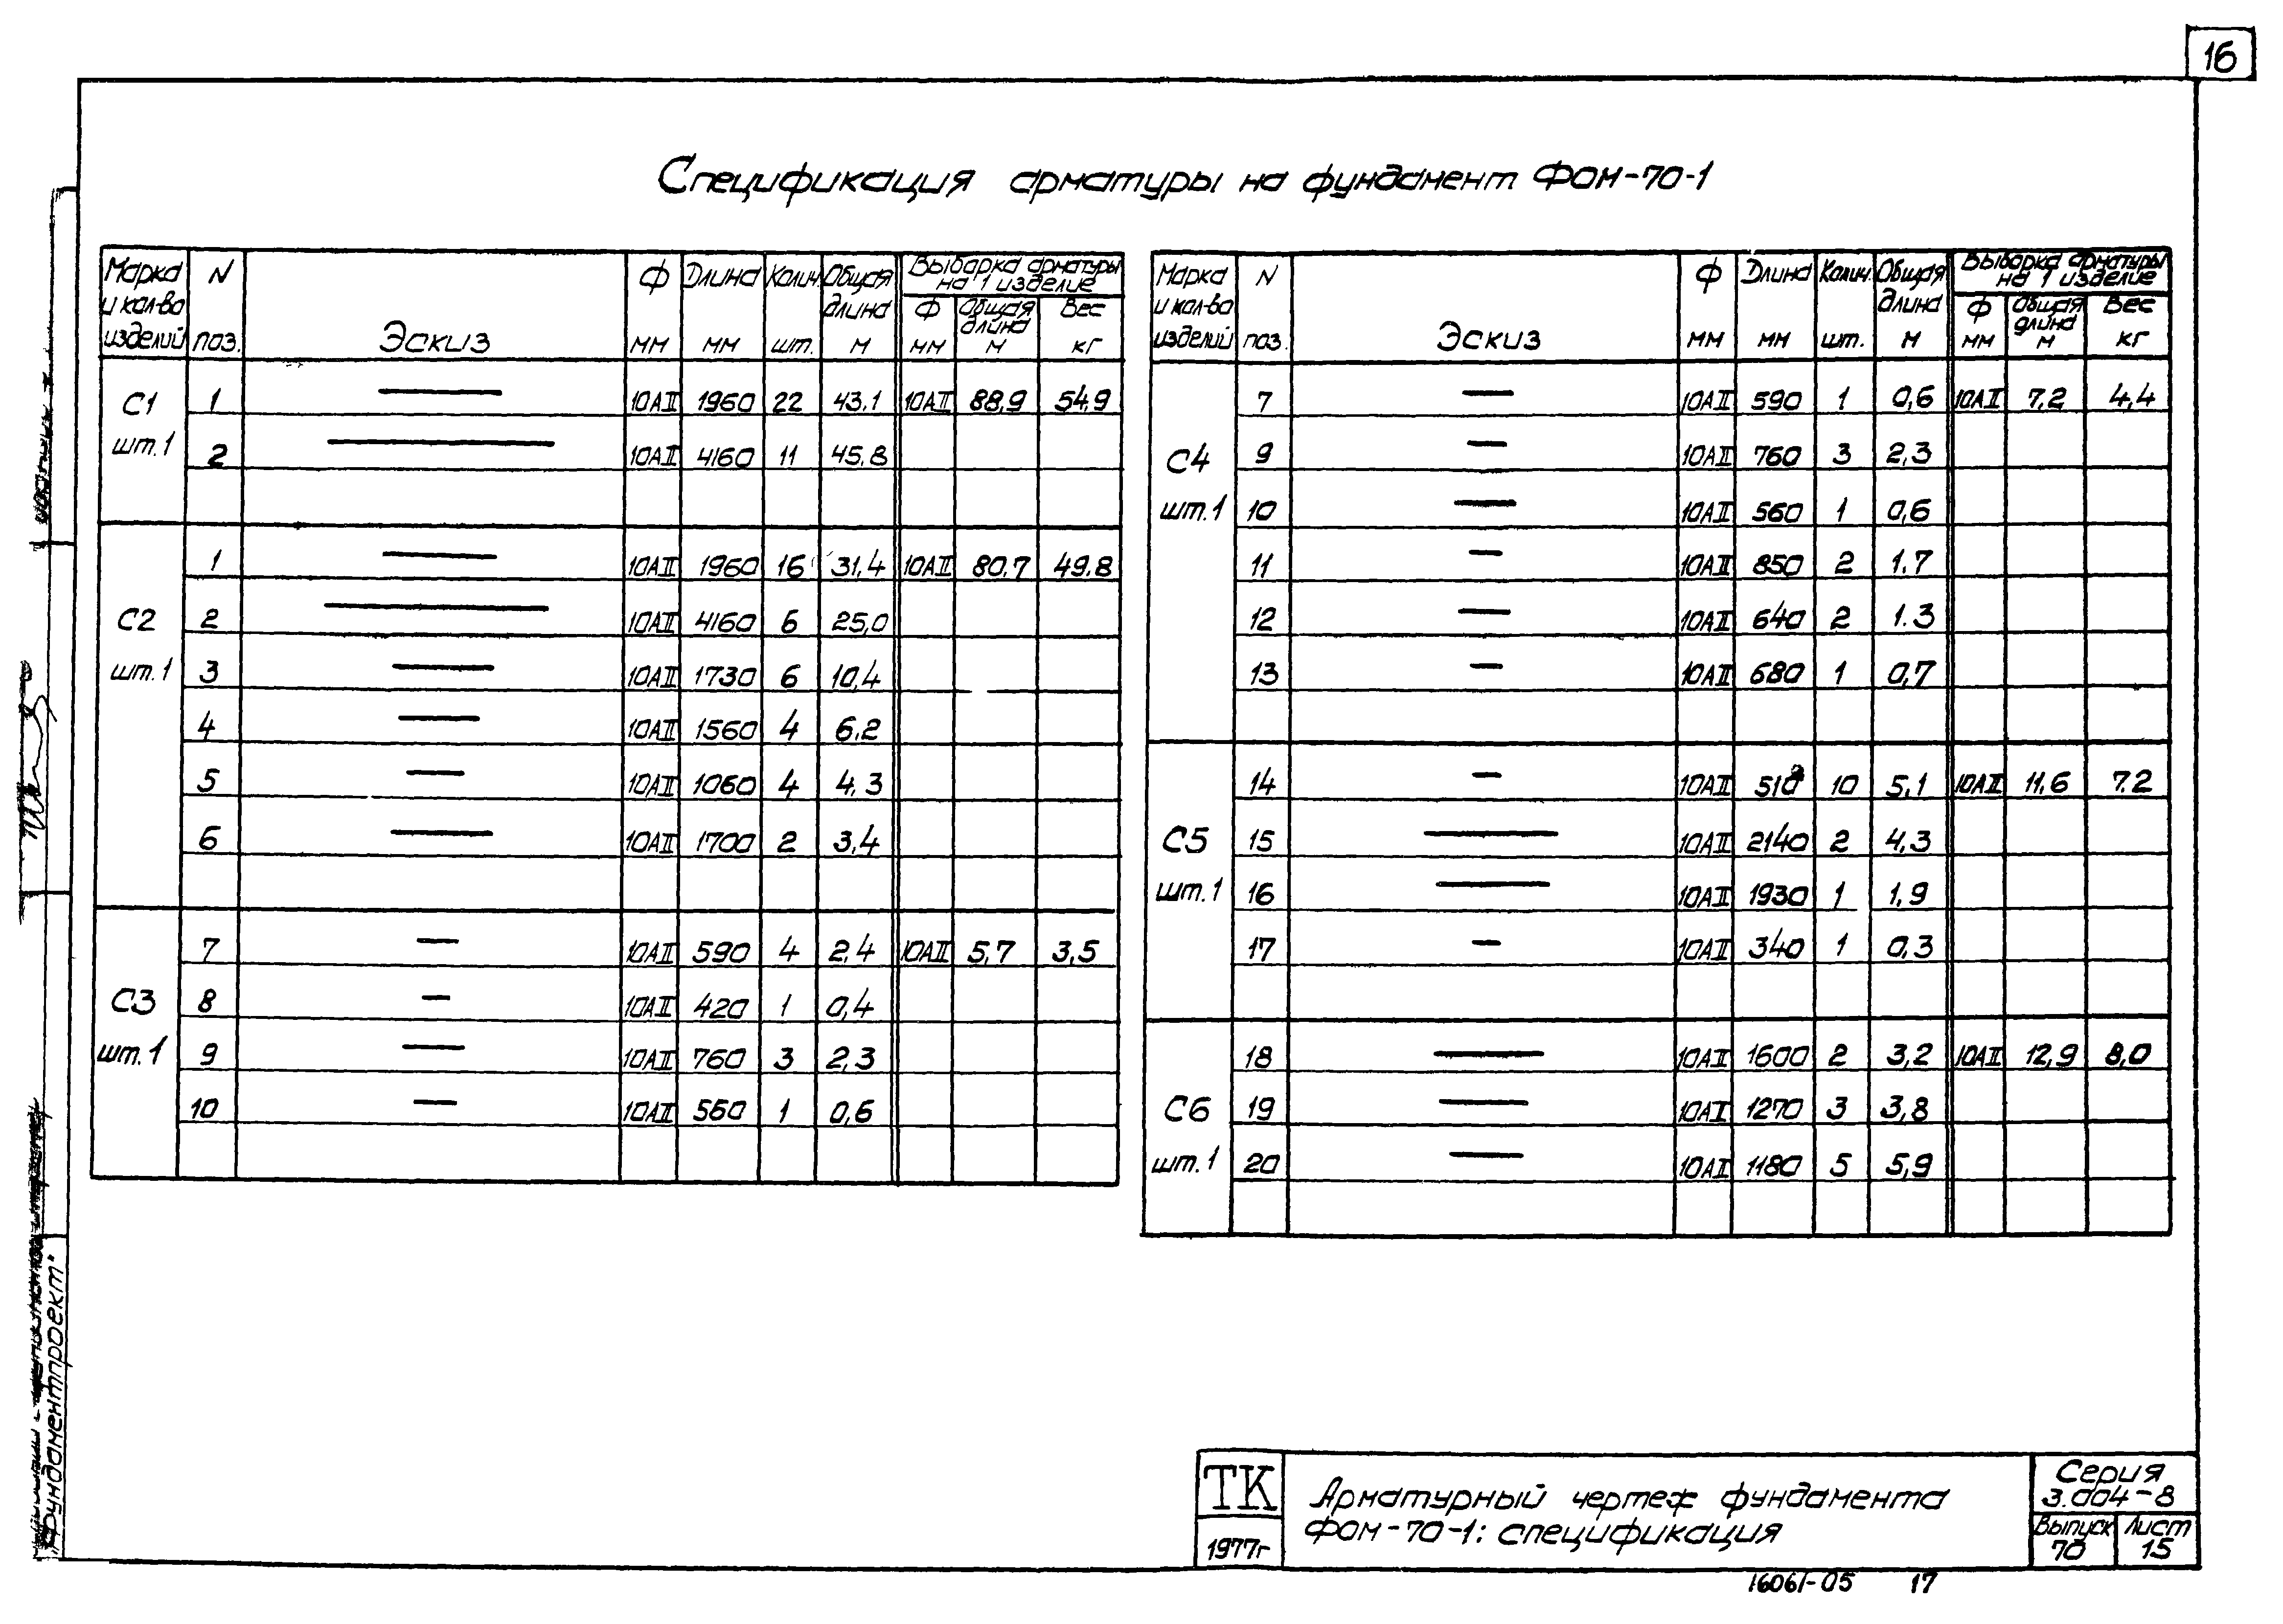 16
Спецификация арматуры на фундамент Фом-70-1
Марка и кол-во изделий | N поз. | Эскиз | Ф мм | Длина мм | Колич. шт. | Общая длина м | Выборка арматуры на 1 изделие: Ф мм | Общая длина м | Вес кг
С1 шт.1 | 1 | 10АII | 1960 | 22 | 43.1 | 10АII | 88,9 | 54,9
2 | 10АII | 4160 | 11 | 45.8
С2 шт.1 | 1 | 10АII | 1960 | 16 | 31,4 | 10АII | 80,7 | 49.8
2 | 10АII | 4160 | 6 | 25,0
3 | 10АII | 1730 | 6 | 10,4
4 | 10АII | 1560 | 4 | 6.2
5 | 10АII | 1060 | 4 | 4,3
6 | 10АII | 1700 | 2 | 3,4
С3 шт.1 | 7 | 10АII | 590 | 4 | 2,4 | 10АII | 5,7 | 3,5
8 | 10АII | 420 | 1 | 0,4
9 | 10АII | 760 | 3 | 2,3
10 | 10АII | 560 | 1 | 0,6
Марка и кол-во изделий | N поз. | Эскиз | Ф мм | Длина мм | Колич. шт. | Общая длина м | Выборка арматуры на 1 изделие: Ф мм | Общая длина м | Вес кг
С4 шт.1 | 7 | 10АII | 590 | 1 | 0,6 | 10АII | 7,2 | 4,4
9 | 10АII | 760 | 3 | 2,3
10 | 10АII | 560 | 1 | 0,6
11 | 10АII | 850 | 2 | 1.7
12 | 10АII | 640 | 2 | 1.3
13 | 10АII | 680 | 1 | 0,7
С5 шт.1 | 14 | 10АII | 510 | 10 | 5,1 | 10АII | 11,6 | 7.2
15 | 10АII | 2140 | 2 | 4,3
16 | 10АII | 1930 | 1 | 1,9
17 | 10АII | 340 | 1 | 0,3
С6 шт.1 | 18 | 10АII | 1600 | 2 | 3,2 | 10АII | 12,9 | 8,0
19 | 10АI | 1270 | 3 | 3,8
20 | 10АII | 1180 | 5 | 5,9
фундаментпроект"
ТК
1977г
Арматурный чертеж фундамента
Фом-70-1: спецификация
Серия
3.004-8
Выпуск
70
Лист
15
16061-05 17